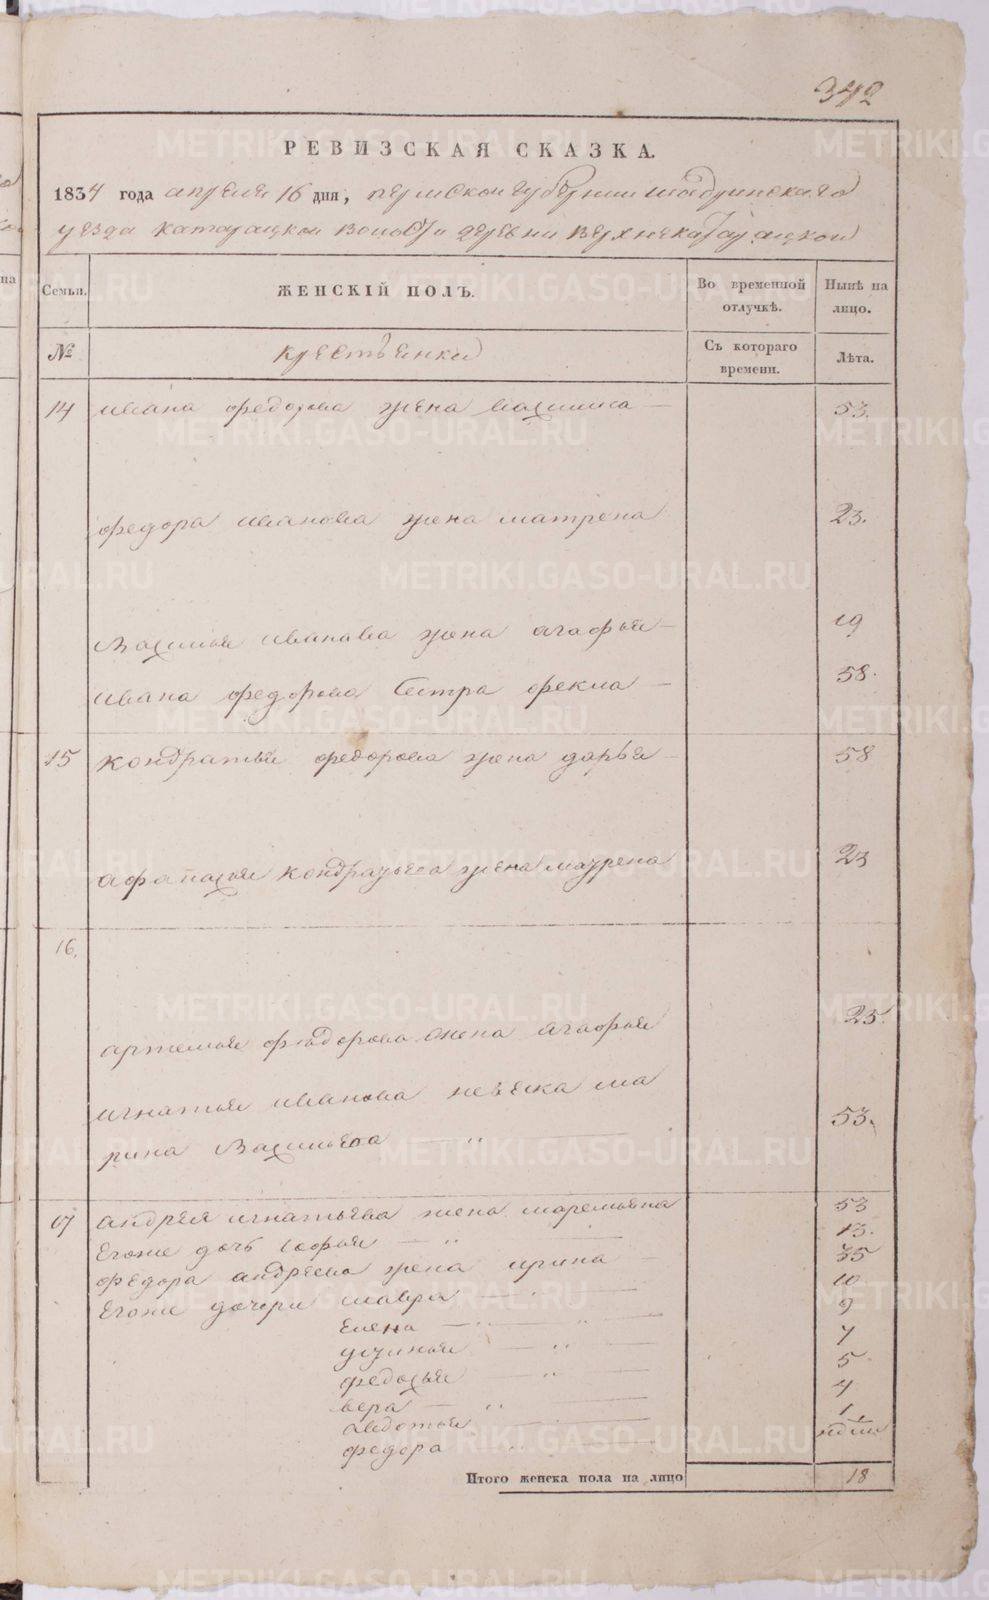 342
РЕВИЗСКАЯ СКАЗКА.
1834 года апреля 16 дня, пермской губернии шадринского
уезда катарацкой волости деревни верхнекатарацкой
Семьи.
ЖЕНСКІЙ ПОЛЪ.
Во временной отлучкѣ.
Нынѣ на лицо.
№
крестьянки
Съ котораго времени.
Лѣта.
14 ивана федорова жена васимиса 53.
федора иванова жена матрена 23.
Василья иванова жена агафья 19
ивана федорова сестра фекла 58.
15 кондратья федорова жена дарья 58
афанасья кондратьева жена матрена 23
16.
артемья федорова жена агафья 25.
игнатья иванова невеска ма
рина Васильева 53.
17 андрея игнатьева жена маремьяна 53
Егоже дочь софья 13.
федора андреева жена ирина 35
Егоже дочери мавра 10
Елена 9
устинья 7
федосья 5
вера 4
авдотья 1
федора
Итого женска пола на лицо 18
METRIKI.GASO-URAL.RU